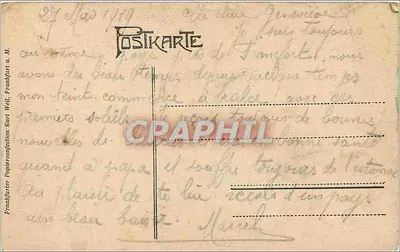 27 Mai 1919
Ma chère Geneviève
je suis toujours
POSTKARTE
au même pays près de Francfort, nous
avons du beau temps depuis quelque temps
mon teint commence à avec ces
soleils je reçois toujours de bonnes
nouvelles de bonne santé
quand à papa il souffre toujours de l'estomac
Au plaisir de te lire reçois d'un pays
un beau baiser
Marcel
CPAPHIL
Frankfurter Papierconfection Karl Weil, Frankfurt a. M.